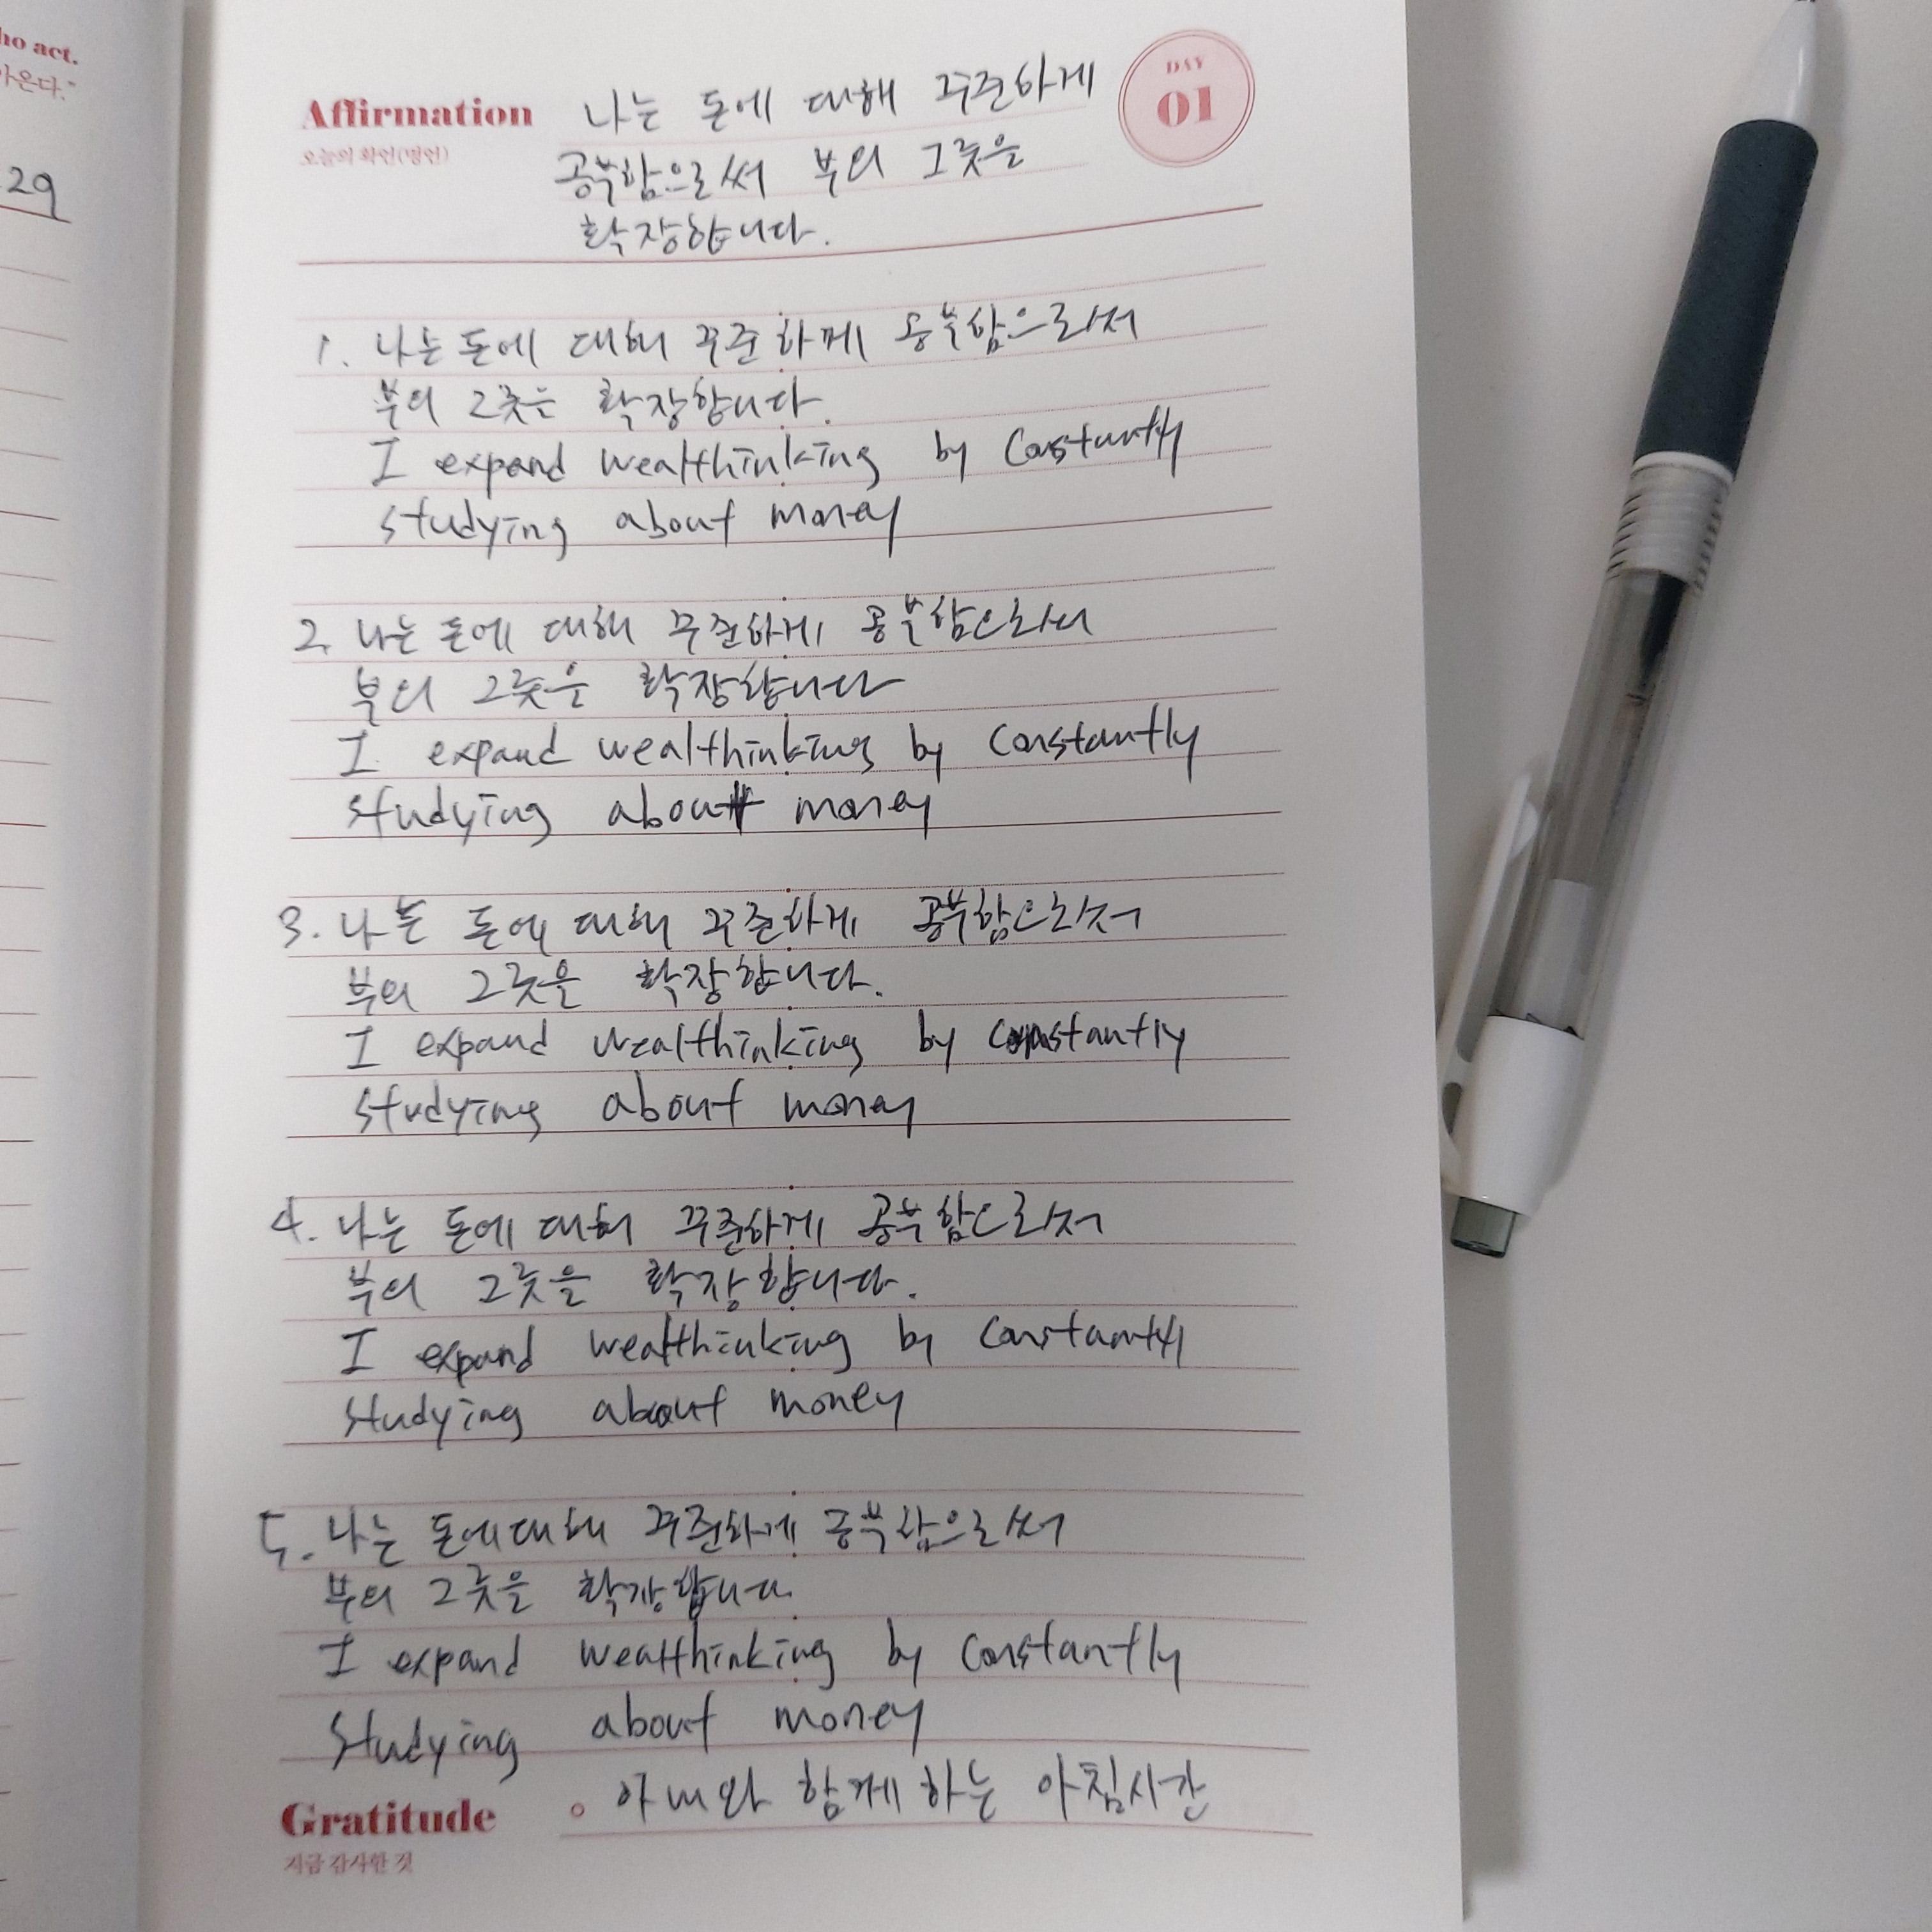 ho act.
아온다."
29
Affirmation
오늘의 확언(명언)
나는 돈에 대해 꾸준하게
공부함으로써 부의 그릇을
확장합니다.
DAY
01
1. 나는 돈에 대해 꾸준하게 공부함으로서
부의 그릇은 확장합니다.
I expand wealthinking by constantly
studying about money
2. 나는 돈에 대해 꾸준하게 공부함으로서
부의 그릇을 확장합니다
I expand wealthinking by constantly
studying about money
3. 나는 돈에 대해 꾸준하게 공부함으로서
부의 그릇을 확장합니다.
I expand wealthinking by constantly
studying about money
4. 나는 돈에 대해 꾸준하게 공부함으로서
부의 그릇을 확장합니다.
I expand wealthinking by constantly
studying about money
5. 나는 돈에 대해 꾸준하게 공부함으로써
부의 그릇을 확장합니다.
I expand wealthinking by constantly
studying about money
Gratitude
지금 감사한 것
아내와 함께 하는 아침시간